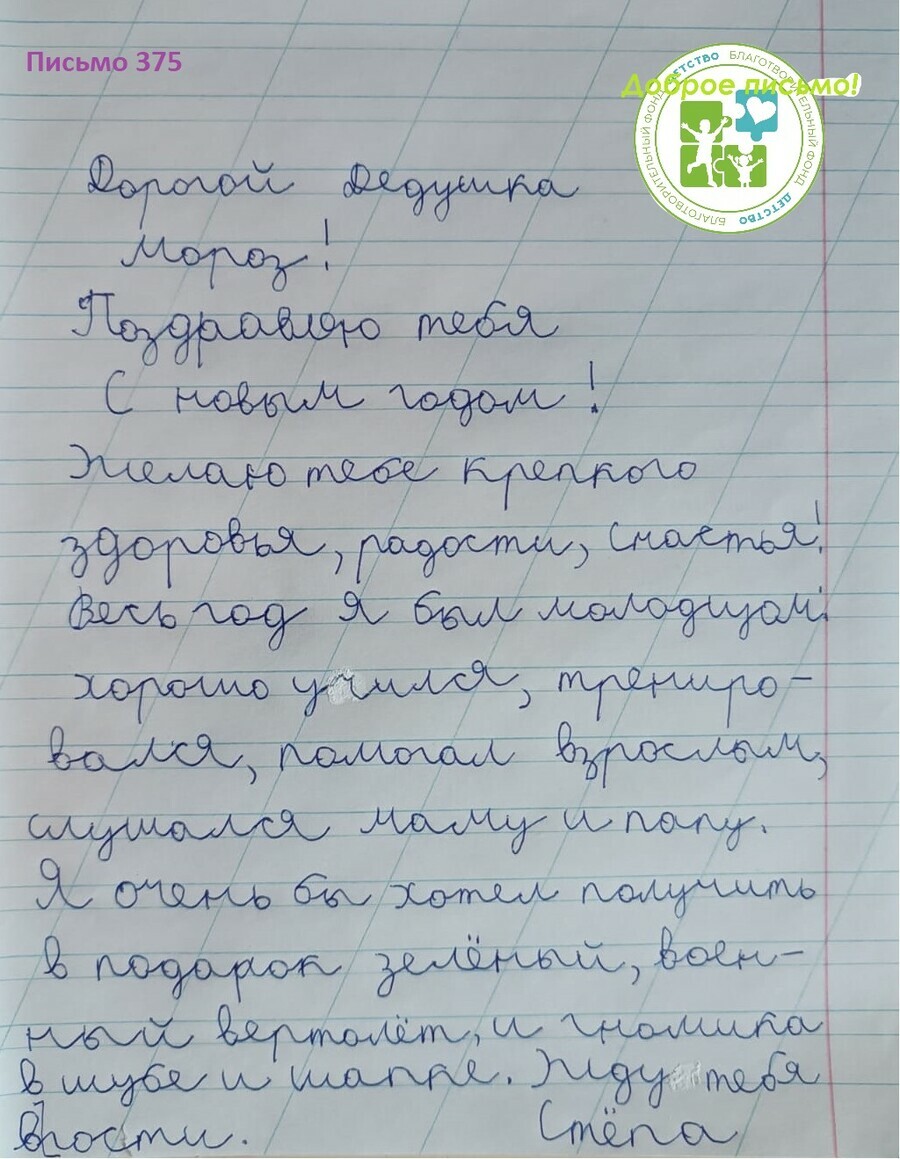 Письмо 375
Доброе письмо!
БЛАГОТВОРИТЕЛЬНЫЙ ФОНД ДЕТСТВО БЛАГОТВОРИТЕЛЬНЫЙ ФОНД ДЕТСТВО
Дорогой Дедушка
Мороз!
Поздравляю тебя
С новым годом!
Желаю тебе крепкого
здоровья, радости, счастья!
Весь год я был молодцом:
хорошо учился, трениро-
вался, помогал взрослым,
слушался маму и папу.
Я очень бы хотел получить
в подарок зелёный, воен-
ный вертолёт, и гномика
в шубе и шапке. Жду тебя
в гости. Стёпа